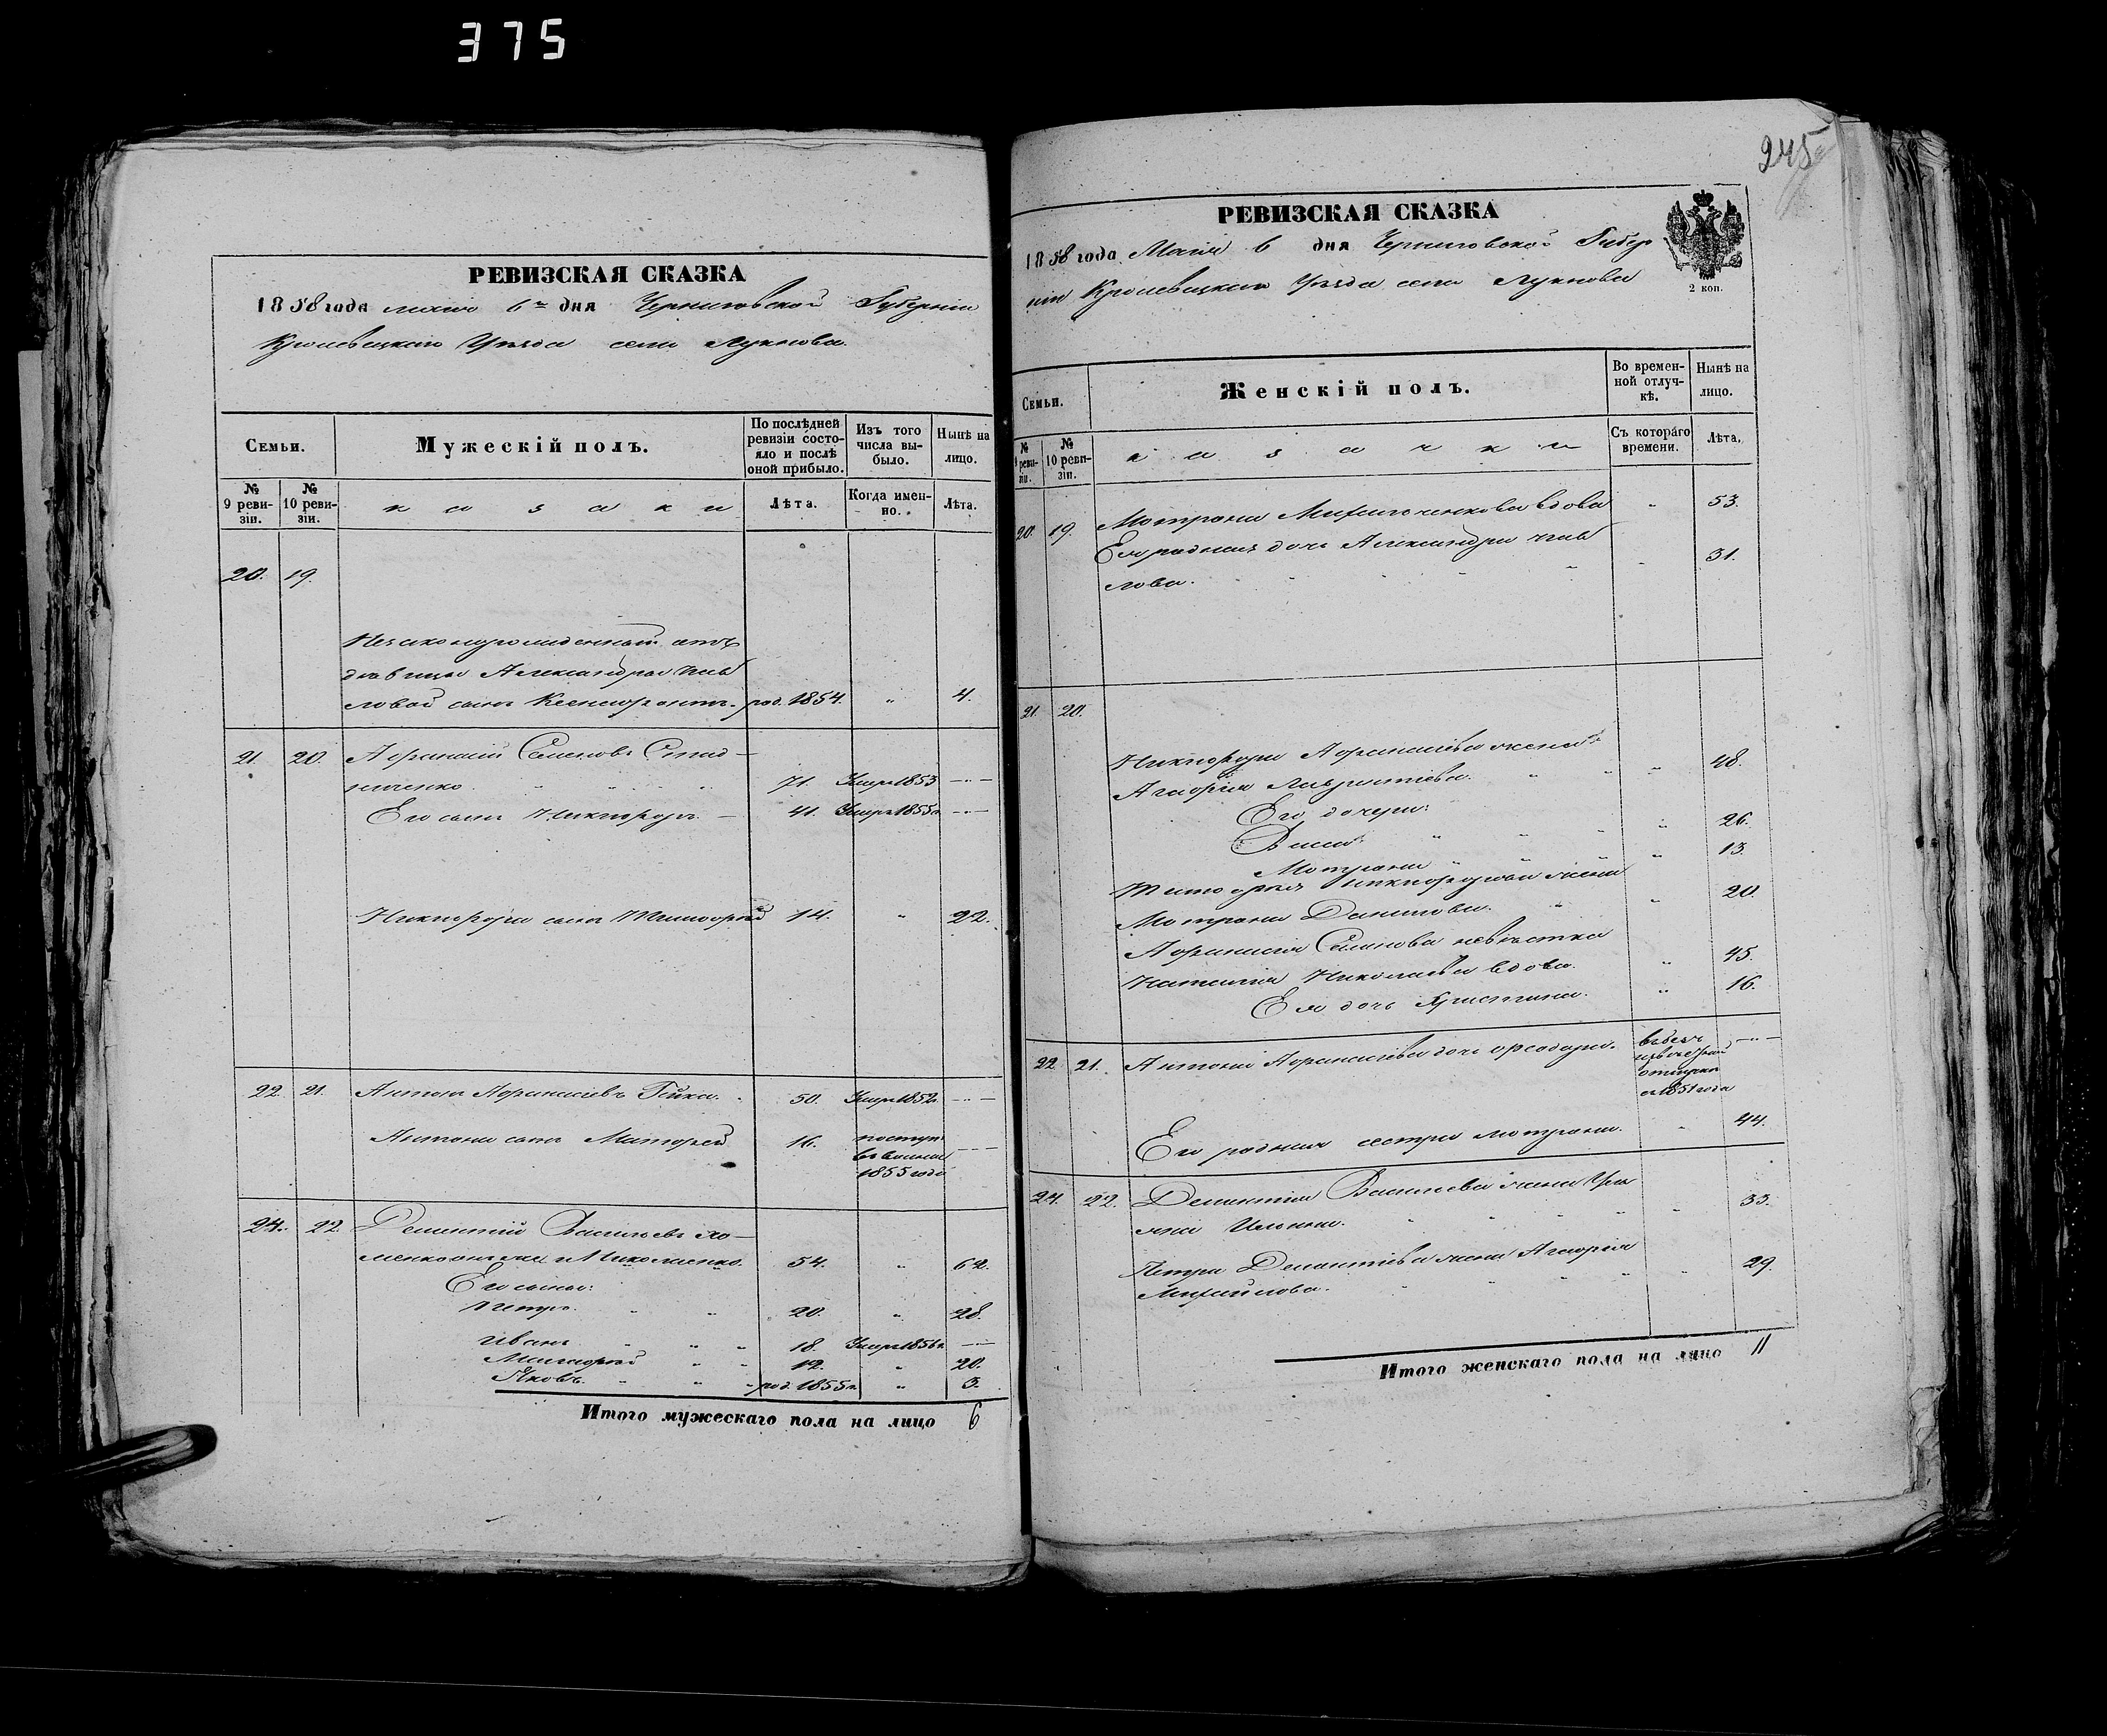 375
РЕВИЗСКАЯ СКАЗКА
1858 года маія 6го дня Черниговской Губерніи
Кролевецкаго Уѣзда села Лукнова.
Семьи.
Мужескій полъ.
По послѣдней ревизіи состояло и послѣ оной прибыло.
Изъ того числа выбыло.
Нынѣ на лицо.
№ 9 ревизіи.
№ 10 ревизіи.
казаки
Лѣта.
Когда именно.
Лѣта.
20. 19.
Незаконорожденный отъ
дѣвицы Александры
ловой сынъ род. 1854. „ 4.
21. 20. Афанасій Семеновъ
71. Умеръ 1853 —„—
Его сынъ Никифоръ — 41. Умеръ 1855 г. —„—
Никифора сынъ Тимофей 14. „ 22.
22. 21. Антонъ Афанасіевъ Гейка. 50. Умеръ 1852 г. —„—
Антона сынъ 16. поступ.
1855 года
24. 22. Дементій Васильевъ Хо-
менко онъ же и Николаенко. 54. „ 62.
Его сыны:
Петръ. 20. „ 28.
Иванъ 18. Умеръ 1856 г. —„—
12. „ 20.
Яковъ. род. 1855 г. „ 3.
Итого мужескаго пола на лицо 6
245
РЕВИЗСКАЯ СКАЗКА
1858 года Маія 6 дня Черниговской Губер
ніи Кролевецкаго Уѣзда села Лукнова
2 коп.
Семьи.
Женскій полъ.
Во временной отлучкѣ.
Нынѣ на лицо.
№ 9 ревизіи.
№ 10 ревизіи.
казачки
Съ котораго времени.
Лѣта.
20. 19. Мотрона вдова „ 53.
Ея родная дочь Александра
лова. „ 31.
21. 20.
Никифора Афанасіева жена
Агафія Лаврентіева. „ 48.
Его дочери:
„ 26.
Мотрона „ 13.
Тимофея Никифорова жена
Мотрона Данилова. „ 20.
Афанасія Семенова невѣстка
Наталія Николаева вдова. „ 45.
Ея дочь Христина. „ 16.
22. 21. Антона Афанасіева дочь Феодора. въ
отлучкѣ
съ 1851 года —„—
Его родная сестра Мотрона. „ 44.
24. 22. Дементія Васильева жена Улья
на Ильина. „ 33.
Петра Дементіева жена Агафія
Михайлова. „ 29.
Итого женскаго пола на лицо 11